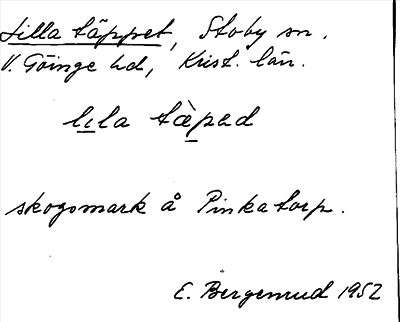 Lilla täppet, Stoby sn.
V. Göinge hd, Krist. län.
lıla tæ̀pad
skogsmark å Pinkatorp.
E. Bergenrud 1952